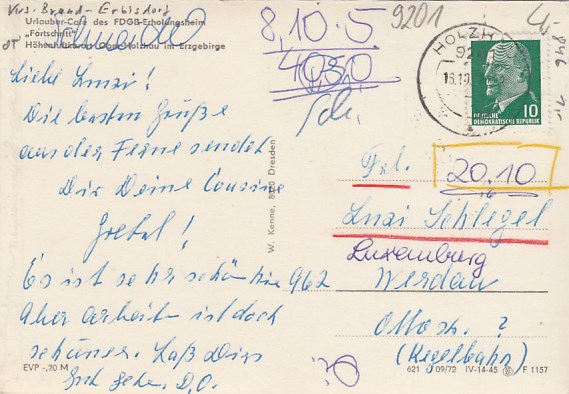 Urlauber-Café des FDGB-Erholungsheim
„Fortschritt"
Höhenluftkurort Oberholzhau im Erzgebirge
8,10.5
4080
9201
HOLZH
10
DEUTSCHE
DEMOKRATISCHE REPUBLIK
Liebe Luzi!
Die besten Grüße
aus der Ferne sendet
Dir Deine Cousine
Gretal!
Es ist sehr schön hin
Aber arbeit ist doch
schöner. Laß Dirs
Gut gehn. D.O.
W. Kenne, Dresden
Frl.
20.10
Luzi Schlegel
Luxemburg
962 Werdau
Ottostr. ?
(Kegelbahn)
EVP -,20 M
621 09/72 IV-14-45 F 1157